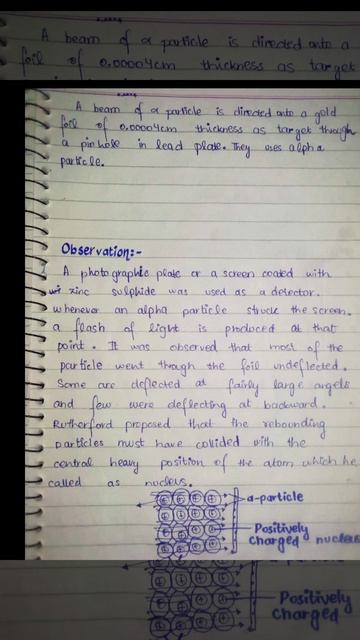 A beam of α particle is directed onto a
foil of 0.00004cm thickness as target
A beam of α particle is directed onto a gold
foil of 0.00004cm thickness as target through
a pin hole in lead plate. They uses alpha
particle.
Observation:-
A photographic plate or a screen coated with
zinc sulphide was used as a detector.
whenever an alpha particle struck the screen.
a flash of light is produced at that
point. It was observed that most of the
particle went though the foil undeflected.
Some are deflected at fairly large angels
and few were deflecting at backward.
Rutherford proposed that the rebounding
particles must have collided with the
central heavy position of the atom which he
called as nucleus.
a-particle
Positively
charged nucleus
Positively
charged